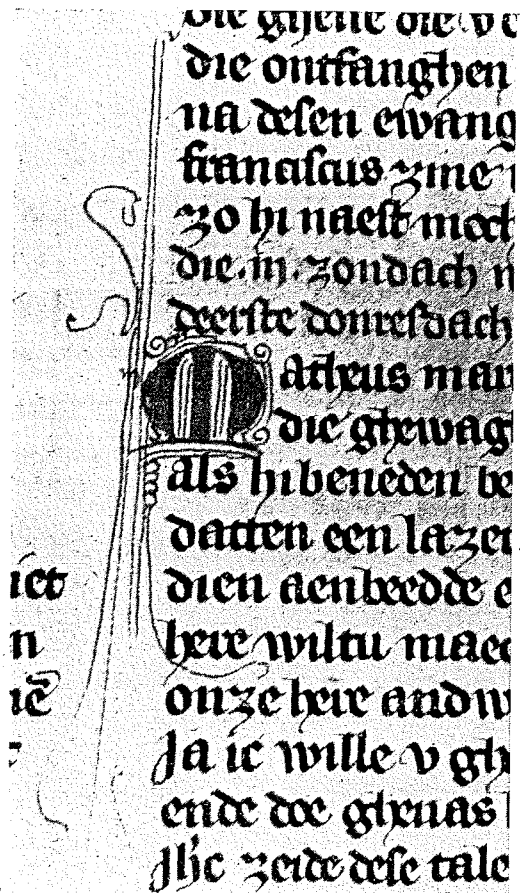 die ghene die v
die ontfanghen
na desen ewang
franciscus zine
zo hi naest moch
die .iij. zondach
deerste donresdach
Matheus mar
die ghewagh
als hi beneden be
datten een lazer
dien aenbeedde e
here wiltu maec
onze here andw
Ja ic wille v gh
ende doe ghenas
Jhc zeide dese tale
iet
n